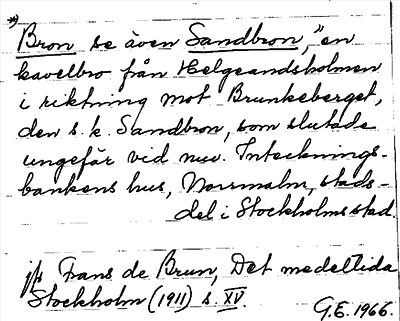 *) Bron se även Sandbron, "en
kavelbro från Helgeandsholmen
i riktning mot Brunkeberget,
den s.k. Sandbron, som slutade
ungefär vid nuv. Intecknings-
bankens hus, Norrmalm, stads-
del i Stockholms stad.
jfr Frans de Brun, Det medeltida
Stockholm (1911) s. XV.
G.E. 1966.